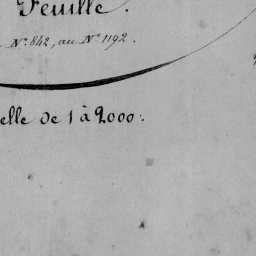 Feuille.
N° 842, au N° 1192.
elle de 1 à 2000.